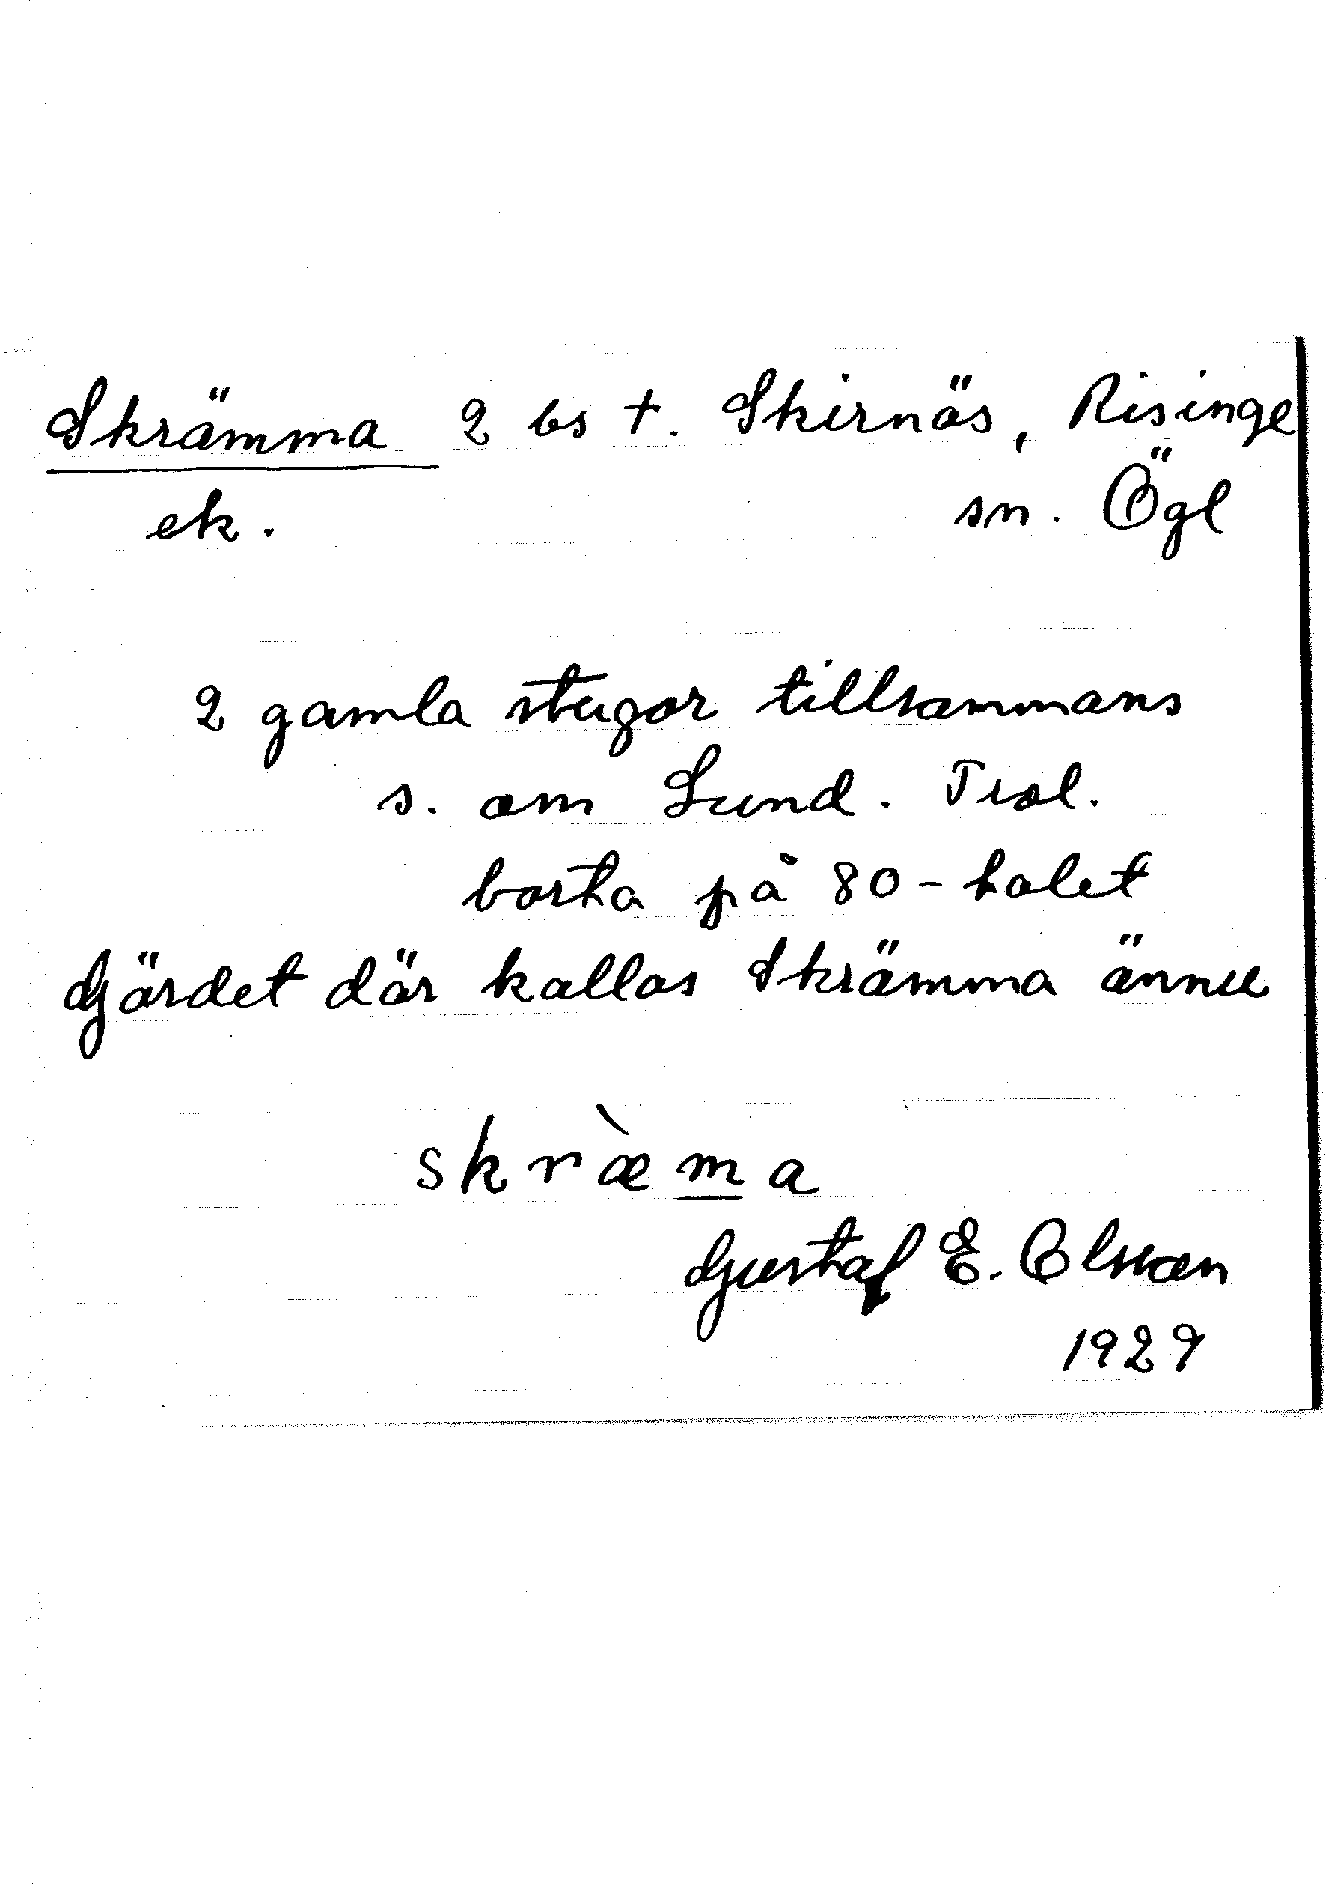 Skrämma 2 bs t. Skirnäs, Risinge
ek. sn. Ögl
2 gamla stugor tillsammans
s. om Lund.
borta på 80-talet
Gärdet där kallas Skrämma ännu
skræ̀m̲a
Gustaf E. Olsson
1929